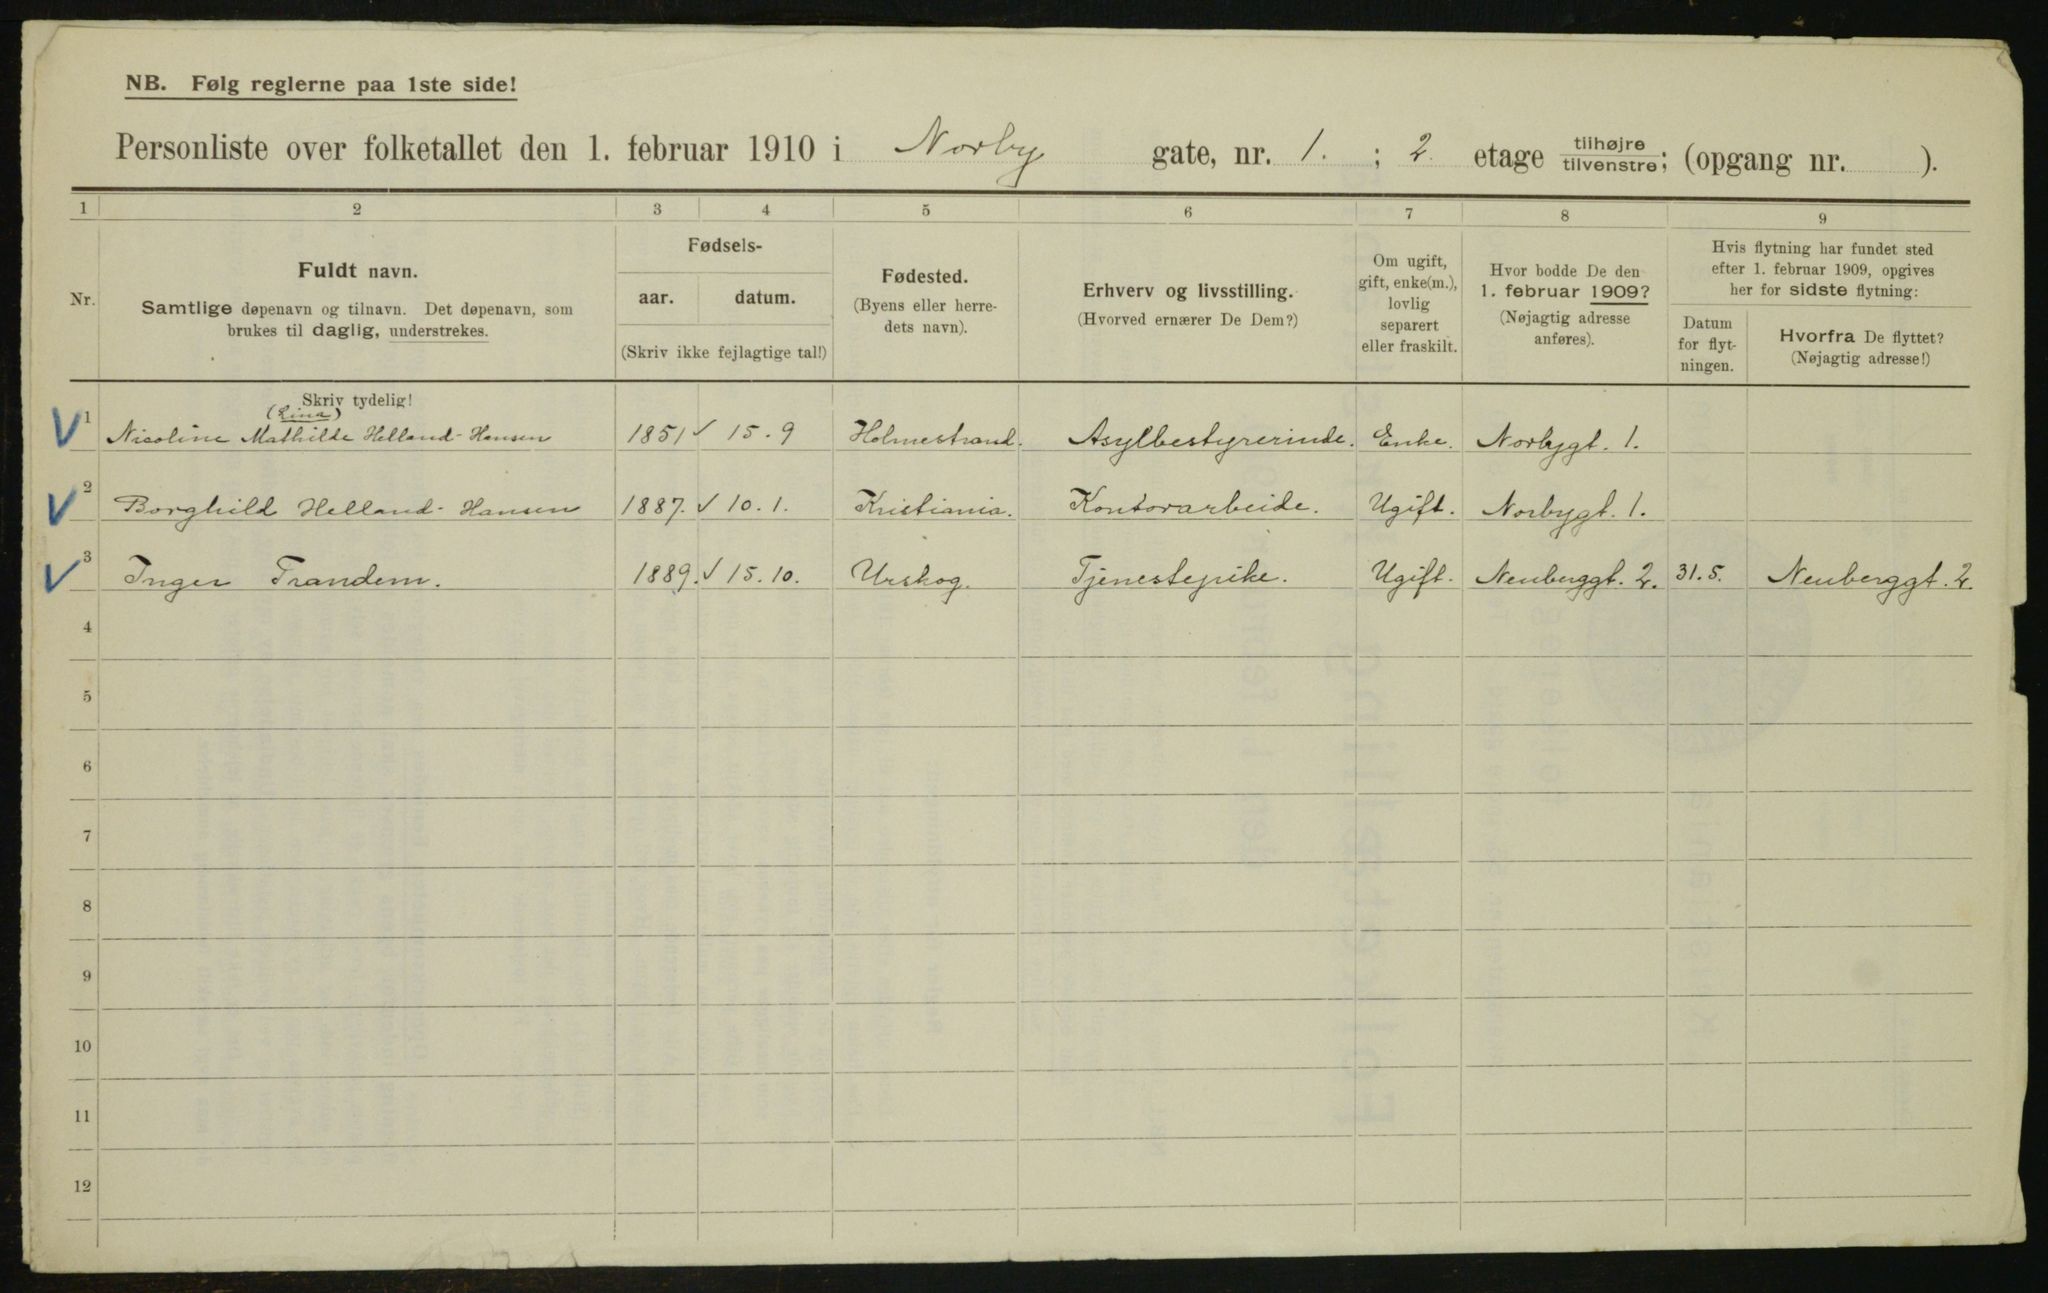 NB. Følg reglerne paa 1ste side!
Personliste over folketallet den 1. februar 1910 i Norby gate, nr. 1. ; 2. etage tilhøjre tilvenstre; (opgang nr. ).
1 2 3 4 5 6 7 8 9
Nr.
Fuldt navn.
Samtlige døpenavn og tilnavn. Det døpenavn, som
brukes til daglig, understrekes.
Fødsels-
aar. datum.
(Skriv ikke fejlagtige tal!)
Fødested.
(Byens eller herre-
dets navn).
Erhverv og livsstilling.
(Hvorved ernærer De Dem?)
Om ugift,
gift, enke(m.),
lovlig
separert
eller fraskilt.
Hvor bodde De den
1. februar 1909?
(Nøjagtig adresse
anføres).
Hvis flytning har fundet sted
efter 1. februar 1909, opgives
her for sidste flytning:
Datum
for flyt-
ningen.
Hvorfra De flyttet?
(Nøjagtig adresse!)
Skriv tydelig!
(Lina)
1 Nicoline Mathilde Helland-Hansen 1851 15.9 Holmestrand. Asylbestyrerinde. Enke. Norbygt. 1.
2 Borghild Helland-Hansen 1887. 10.1. Kristiania. Kontorarbeide. Ugift. Norbygt. 1.
3 Inger Trandem. 1889. 15.10. Urskog. Tjenestepike. Ugift. Neuberggt. 2. 31.5. Neuberggt. 2.
4
5
6
7
8
9
10
11
12